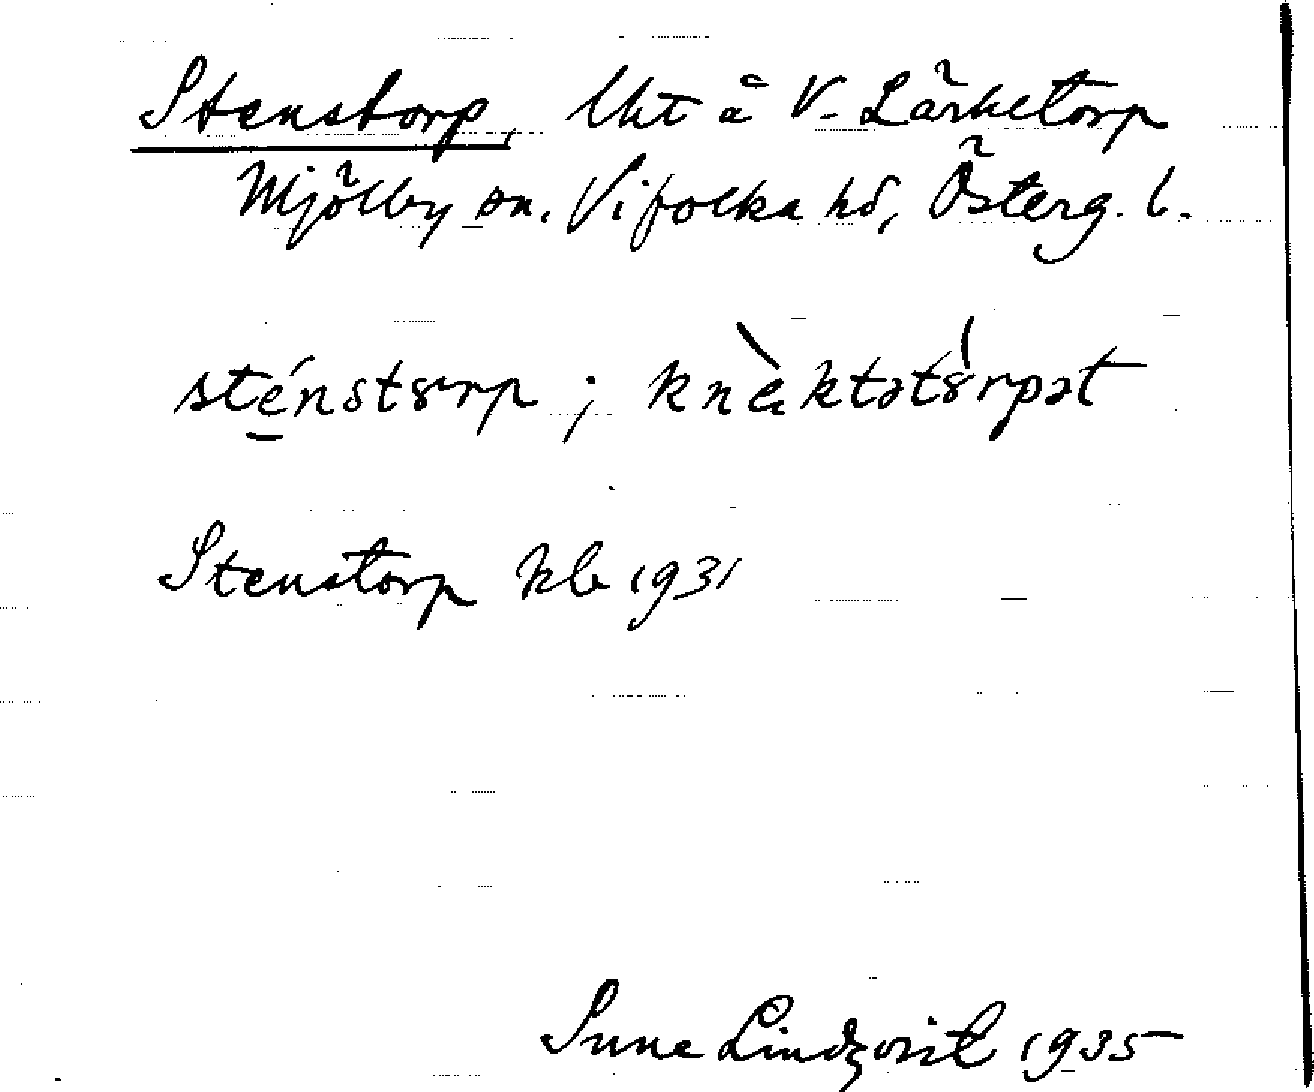 Stenstorp, lht å V. Lärketorp
Mjölby sn. Vifolka hd, Österg. l.
sténstorp ; knèktətórpət
Stenstorp kb 1931
Sune Lindqvist 1935